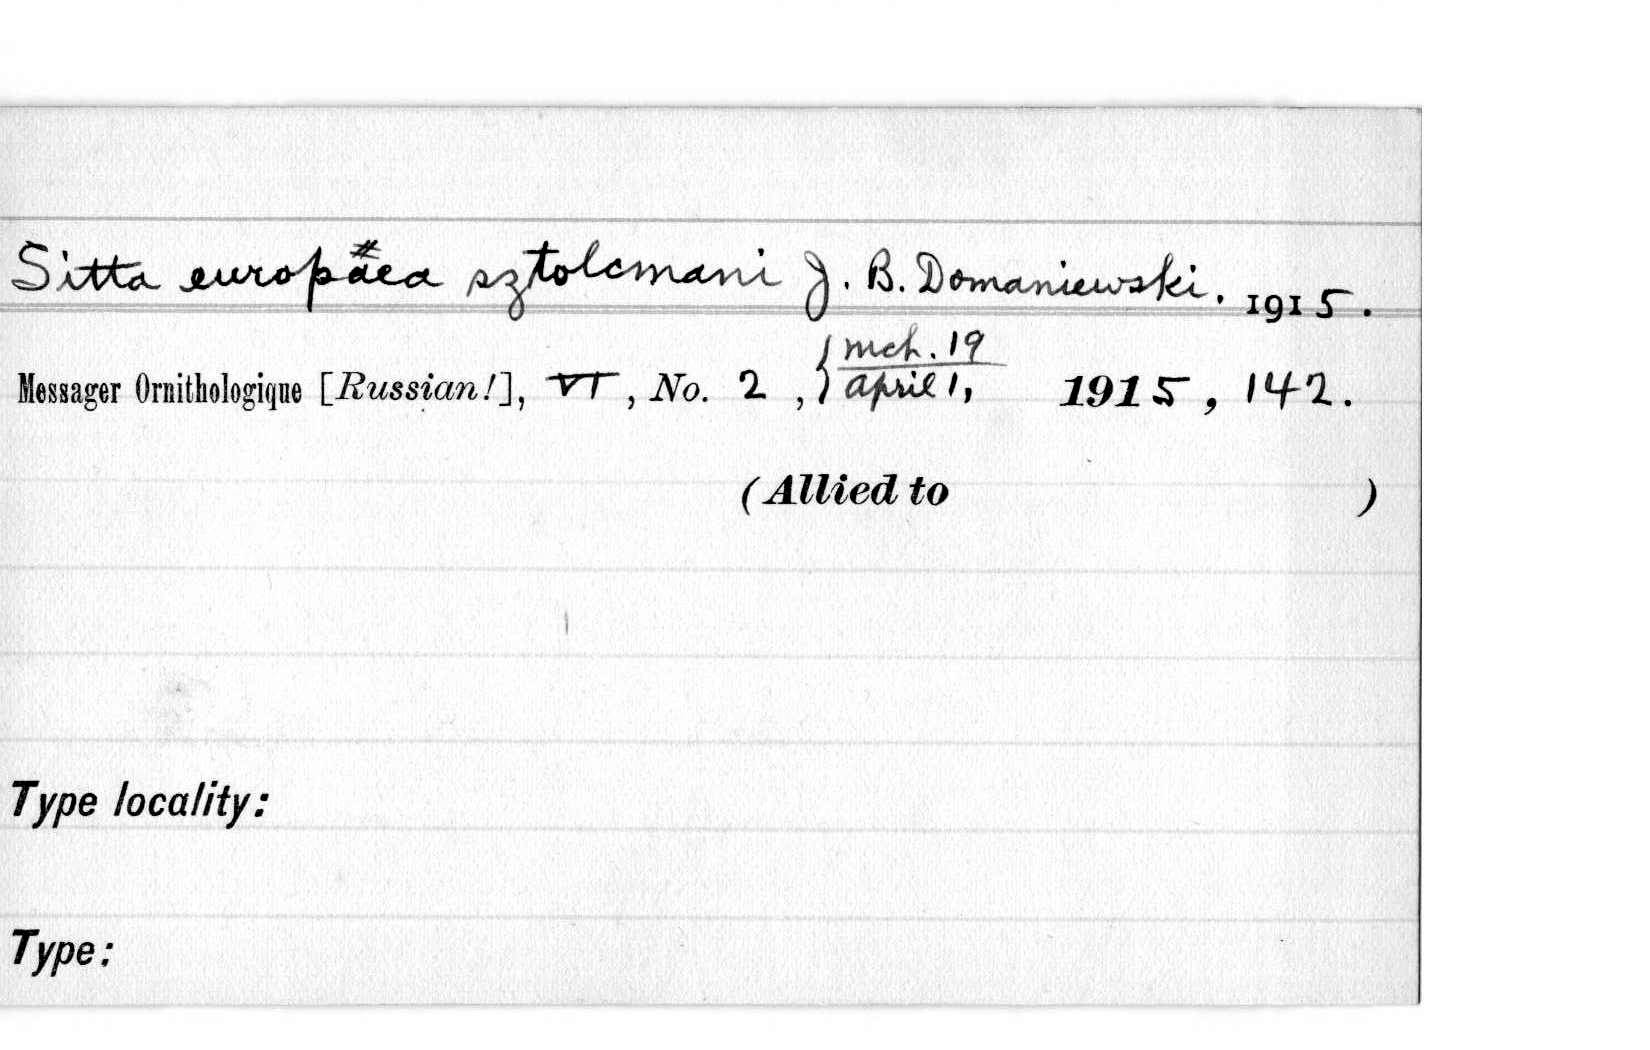 Sitta europaea sztolcmani J. B. Domaniewski. 1915.
Messager Ornithologique [Russian!], VI, No. 2, { mch. 19
april 1, 1915, 142.
(Allied to )
Type locality:
Type: